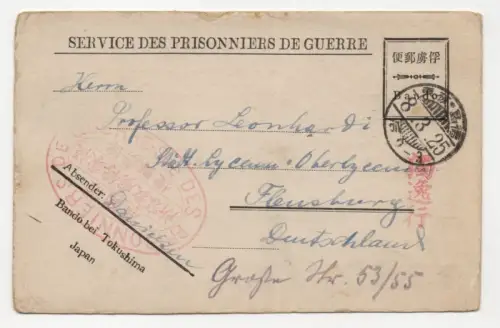 SERVICE DES PRISONNIERS DE GUERRE
便郵虜俘
Herrn
Professor Leonhardi
Städt. Lyceum-Oberlyceum
Flensburg
Deutschland
Große Str. 53/55
Absender:
Bando bei Tokushima
Japan
8 3 25